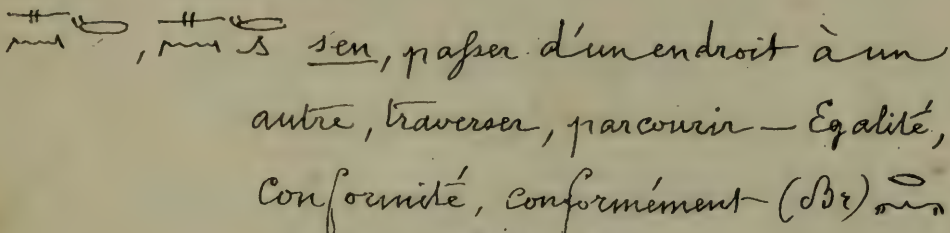 𓊃𓈖𓂻, 𓊃𓈖 sen, passer d'un endroit à un
autre, traverser, parcourir — Egalité,
Conformité, conformément (Br) 𓂋𓈖